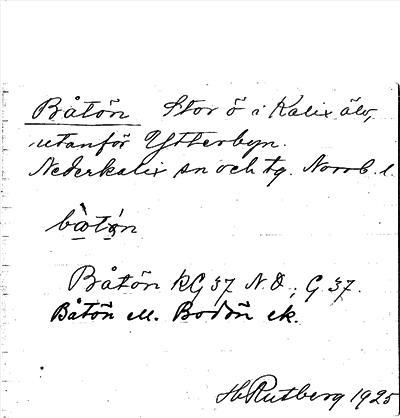 Båtön Stor ö i Kalix älv,
utanför Ytterbyn.
Nederkalix sn och tg. Norrb. l.
bå̀tǿn
Båtön KG 37 N.O.; G 37.
Båtön ell. Bodön ek.
H Rutberg 1925